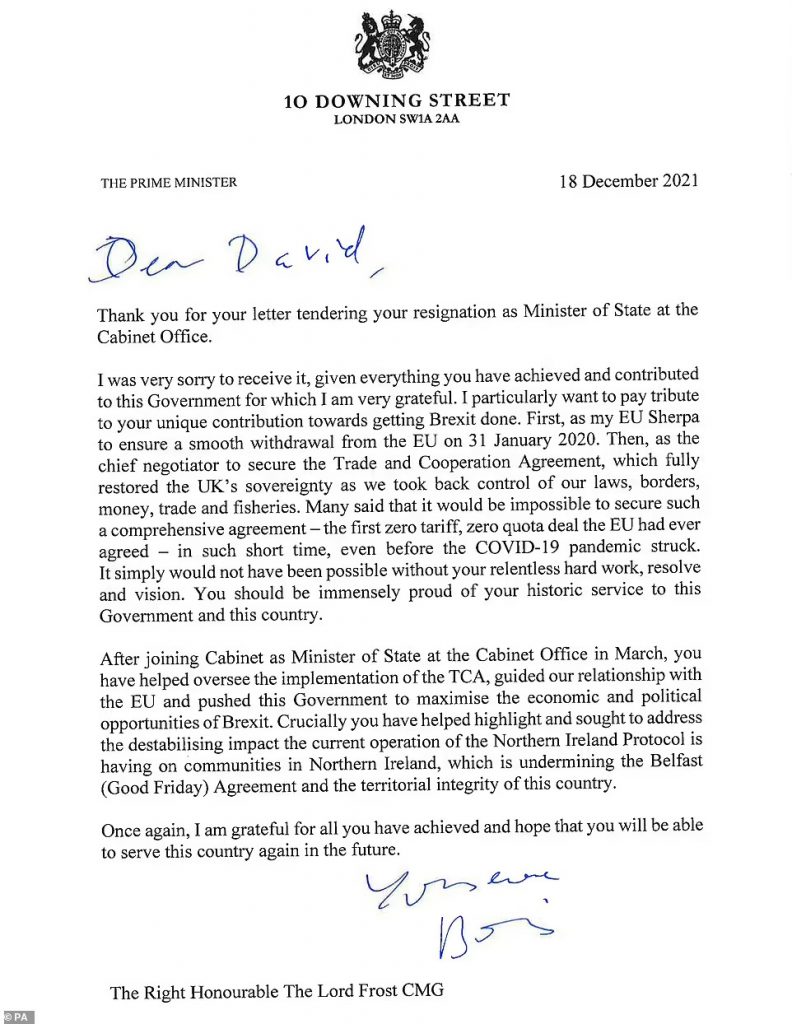 10 DOWNING STREET
LONDON SW1A 2AA
THE PRIME MINISTER
18 December 2021
Dear David,
Thank you for your letter tendering your resignation as Minister of State at the
Cabinet Office.
I was very sorry to receive it, given everything you have achieved and contributed
to this Government for which I am very grateful. I particularly want to pay tribute
to your unique contribution towards getting Brexit done. First, as my EU Sherpa
to ensure a smooth withdrawal from the EU on 31 January 2020. Then, as the
chief negotiator to secure the Trade and Cooperation Agreement, which fully
restored the UK's sovereignty as we took back control of our laws, borders,
money, trade and fisheries. Many said that it would be impossible to secure such
a comprehensive agreement – the first zero tariff, zero quota deal the EU had ever
agreed – in such short time, even before the COVID-19 pandemic struck.
It simply would not have been possible without your relentless hard work, resolve
and vision. You should be immensely proud of your historic service to this
Government and this country.
After joining Cabinet as Minister of State at the Cabinet Office in March, you
have helped oversee the implementation of the TCA, guided our relationship with
the EU and pushed this Government to maximise the economic and political
opportunities of Brexit. Crucially you have helped highlight and sought to address
the destabilising impact the current operation of the Northern Ireland Protocol is
having on communities in Northern Ireland, which is undermining the Belfast
(Good Friday) Agreement and the territorial integrity of this country.
Once again, I am grateful for all you have achieved and hope that you will be able
to serve this country again in the future.
Yours ever
Boris
The Right Honourable The Lord Frost CMG
© PA